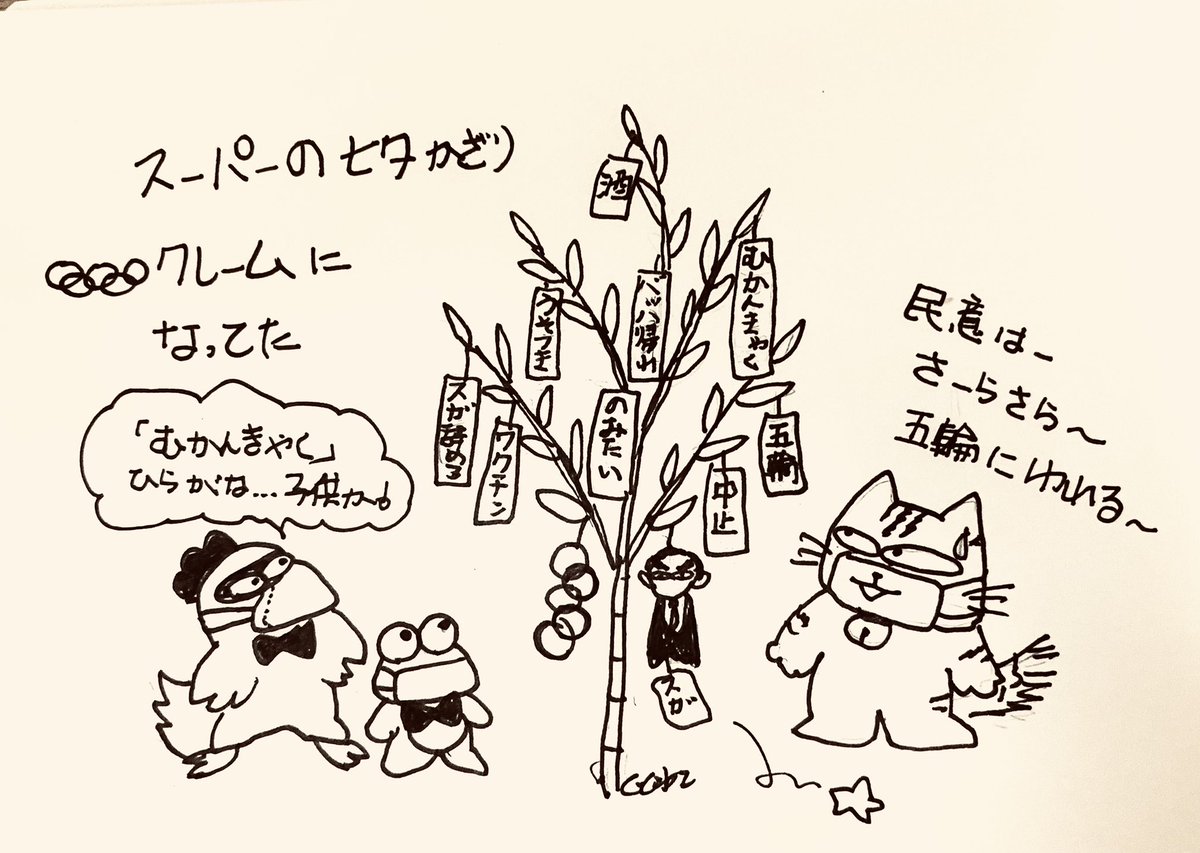 スーパーの七夕かざり
クレームに
なってた
「むかんきゃく」
ひらがな…子供か!
酒
うそつき
バッハ帰れ
むかんきゃく
スガ辞めろ
ワクチン
のみたい
五輪
中止
スガ
民意はー
さーらさら〜
五輪にゆれる〜